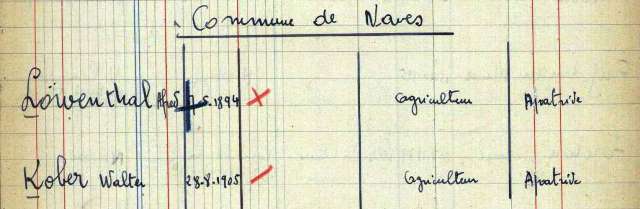 Commune de Naves
Löwenthal Alfred .5.1894 cagriculteur Apatride
Kober Walter 28.8.1905 agriculteur Apatride